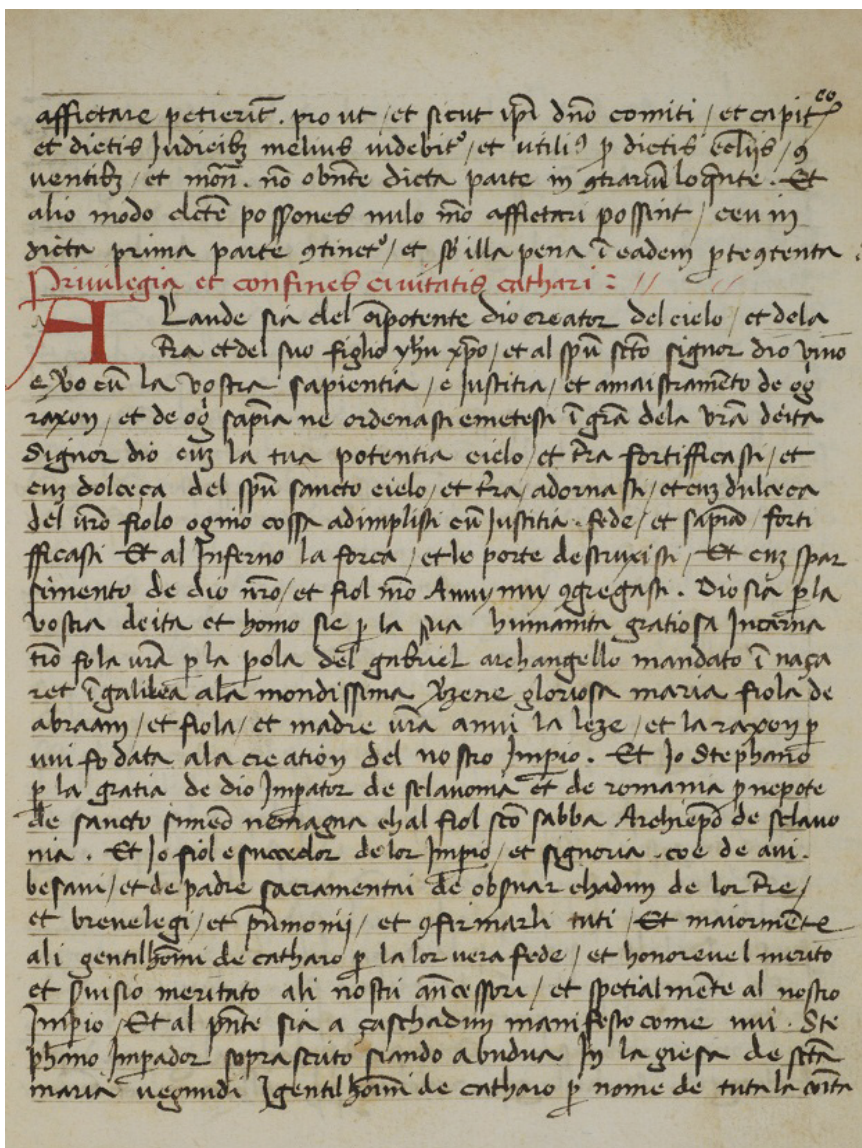 affictare petierit̃. pro ut / et sicut ip̃i dn̄o comiti / et capit̃eo
et dictis Judicibȝ melius uidebitꝰ / et utiliꝰ ꝑ dictis eccl̃iis / ꝯ
uentibȝ / et mon̄. nō obñte dicta parte in ꝯtrariũ loq̃nte. Et
alio modo dictẽ possones nulo mõ affictari possint / ceu in
dicta prima parte ꝯtinetꝰ / et sb̃ illa pena ĩ eadem ꝑte ꝯtenta
Priuilegia et confines ciuitatis cathari :
A Laude sia del õipotente dio creator del cielo / et dela
t̃ra et del suo figlio yh̃u xp̃o / et al sp̃u sc̃to signor dio viuo
e ṽo cũ la vostra sapientia / e Justitia / et amaistram̃to de og̃
raxon / et de og̃ sap̃ia ne ordenasti e metesti ĩ gr̃a dela vr̃a deita
Signor dio cuȝ la tua potentia cielo / et t̃ra fortifficasti / et
cuȝ dolceça del sp̃u sancto cielo / et t̃ra / adornasti / et cuȝ dulceça
del vr̃o fiolo ognio cossa adimplisti cũ Justitia. fede / et sap̃ia / forti
fficasti Et al Inferno la força / et le porte destruxisti / Et cuȝ spar
simento de dio nr̃o / et fiol nr̃o Anuy nuy ꝯgregasti. Dio sia ꝑ la
vostra deita et homo sie ꝑ la sua humanita gratiosa Incarna
tiõ fo la vr̃a ꝑ la ꝑola del gabriel archangello mandato ĩ naça
ret ĩ galilea ala mondissima ṽzene gloriosa maria fiola de
abraam / et fiola / et madre vr̃a anui la leze / et la raxon ꝑ
uui fo data ala creation del nostro Imp̃io. Et Jo Stephano
ꝑ la gratia de dio Imꝑator de sclauonia et de romania pnepote
de sancto simeõ nemagna chal fiol sc̃o sabba Archiep̃o de sclauo
nia. Et Jo fiol e succedor de lor Imp̃io / et signoria. coe de aui.
besaui / et de padre sacramentai de obs̃uar chadun de lor t̃re /
et breuelegi / et p̃imonij / et ꝯfirmarli tuti / Et maiorm̃ẽte
ali gentilhom̃i de catharo ꝑ la lor vera fede / et honoreuel merito
et s̃uisio meritato ali nostri añcessori / et spetialm̃ente al nostro
Imp̃io / Et al p̃nte sia a çaschadun manifesto come nui. Ste
phano Imperador soprascrito siando abudua In la giesa de sc̃ta
maria uegnudi I gentilhom̃i de catharo ꝑ nome de tuta la com̃ta